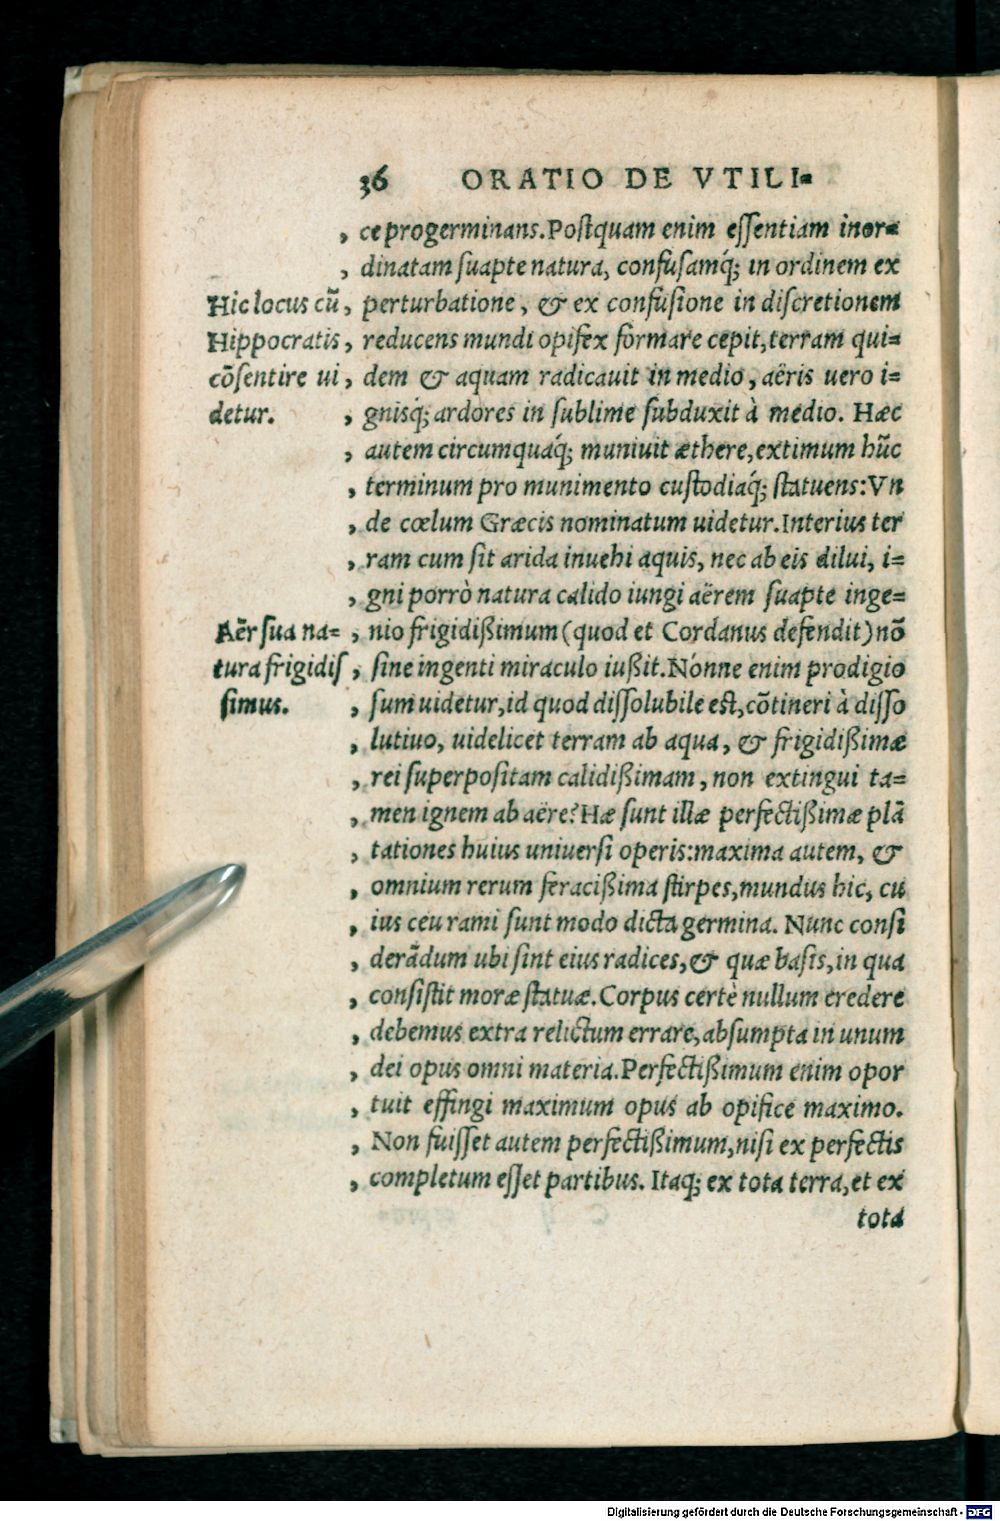 36 ORATIO DE VTILI=
, ce progerminans. Postquam enim essentiam inor=
, dinatam suapte natura, confusamq́; in ordinem ex
Hic locus cū , perturbatione, & ex confusione in discretionem
Hippocratis , reducens mundi opifex formare cepit, terram qui=
cōsentire ui , dem & aquam radicauit in medio, aëris uero i=
detur. , gnisq́; ardores in sublime subduxit à medio. Hæc
, autem circumquaq́; muniuit æthere, extimum hūc
, terminum pro munimento custodiaq́; statuens: Vn
, de cœlum Græcis nominatum uidetur. Interius ter
, ram cum sit arida inuehi aquis, nec ab eis dilui, i=
, gni porrò natura calido iungi aërem suapte inge=
Aër sua na= , nio frigidißimum (quod et Cordanus defendit) nō
tura frigidis , sine ingenti miraculo iußit. Nónne enim prodigio
simus. , sum uidetur, id quod dissolubile est, cōtineri à disso
, lutiuo, uidelicet terram ab aqua, & frigidißimæ
, rei superpositam calidißimam, non extingui ta=
, men ignem ab aëre? Hæ sunt illæ perfectißimæ plā
, tationes huius uniuersi operis: maxima autem, &
, omnium rerum feracißima stirpes, mundus hic, cu
, ius ceu rami sunt modo dicta germina. Nunc consi
, derādum ubi sint eius radices, & quæ basis, in qua
, consistit moræ statuæ. Corpus certè nullum credere
, debemus extra relictum errare, absumpta in unum
, dei opus omni materia. Perfectißimum enim opor
, tuit effingi maximum opus ab opifice maximo.
, Non fuisset autem perfectißimum, nisi ex perfectis
, completum esset partibus. Itaq; ex tota terra, et ex
tota
Digitalisierung gefördert durch die Deutsche Forschungsgemeinschaft - DFG